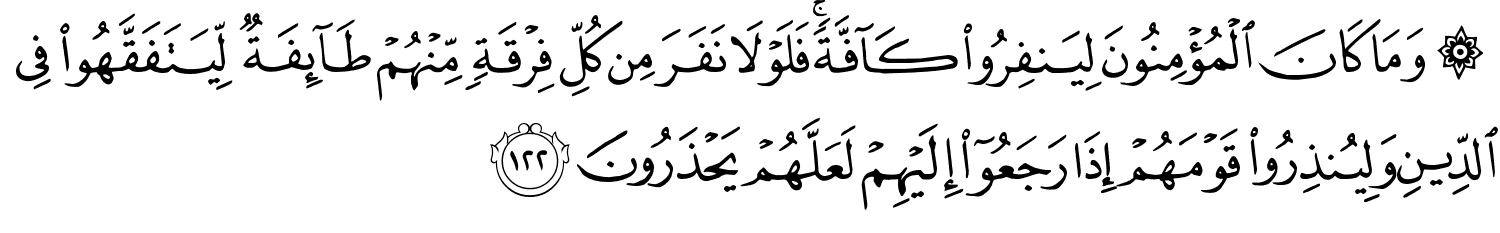 ۞ وَمَا كَانَ ٱلْمُؤْمِنُونَ لِيَنفِرُوا۟ كَآفَّةًۭ ۚ فَلَوْلَا نَفَرَ مِن كُلِّ فِرْقَةٍۢ مِّنْهُمْ طَآئِفَةٌۭ لِّيَتَفَقَّهُوا۟ فِى
ٱلدِّينِ وَلِيُنذِرُوا۟ قَوْمَهُمْ إِذَا رَجَعُوٓا۟ إِلَيْهِمْ لَعَلَّهُمْ يَحْذَرُونَ ١٢٢